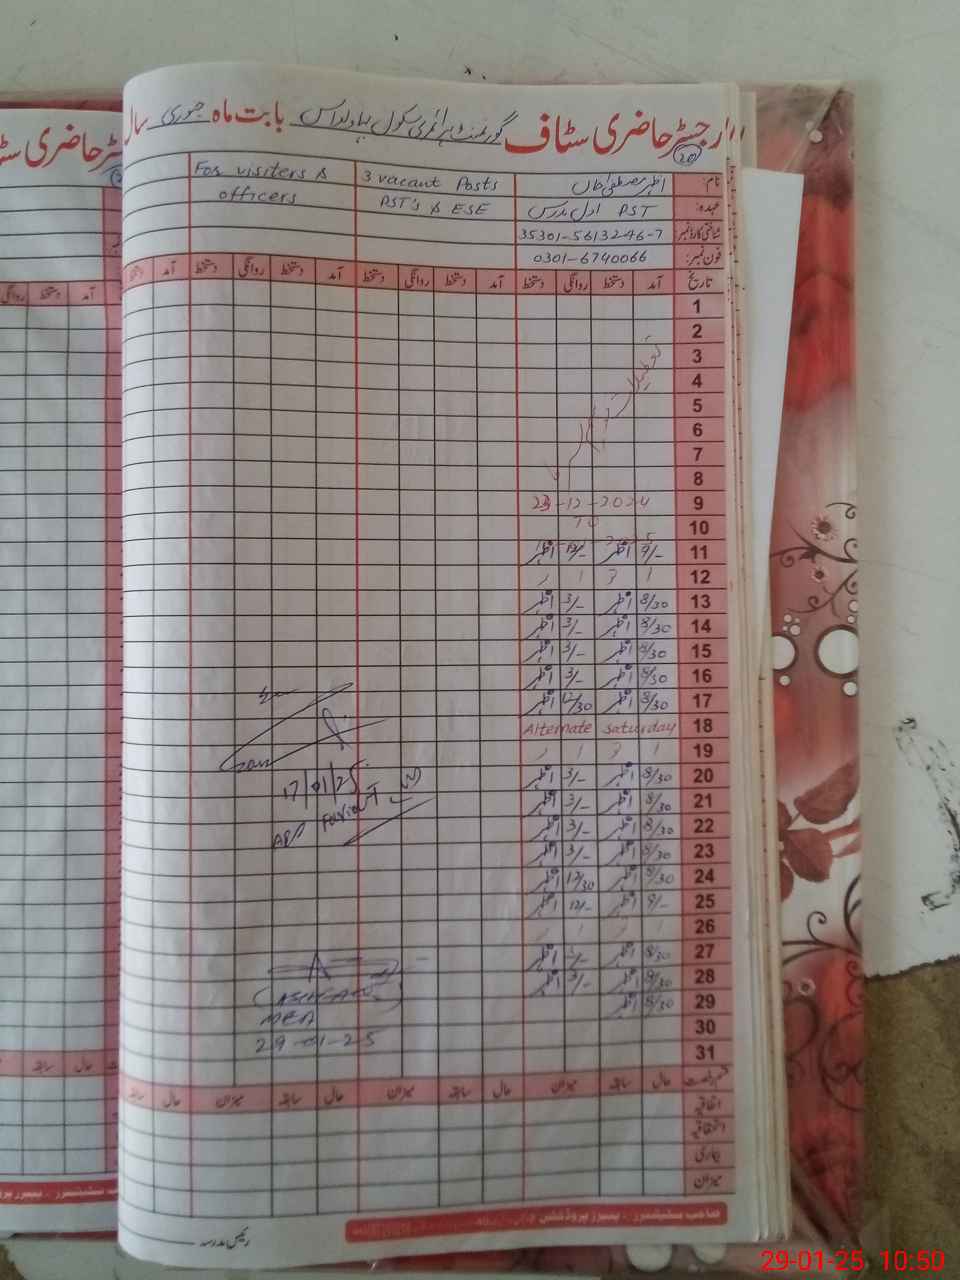 رجسٹر حاضری سٹاف گورنمنٹ پرائمری سکول بابت ماہ جنوری سال
20
نام: اظہر مصطفیٰ خاں
3 vacant Posts
For visiters &
عہدہ: PST اول مدرس
PST's & ESE
officers
شناختی کارڈ نمبر: 35301-5613246-7
فون نمبر: 0301-6740066
تاریخ آمد دستخط روانگی دستخط آمد دستخط روانگی دستخط آمد دستخط روانگی دستخط آمد
1
2
3
4
5
6
7
8
9 23-12-2024
10 To
11 9/- اظہر 12/- اظہر
12
13 8/30 اظہر 3/- اظہر
14 8/30 اظہر 3/- اظہر
15 8/30 اظہر 3/- اظہر
16 8/30 اظہر 3/- اظہر
17 8/30 اظہر 12/30 اظہر
18 Alternate saturday
19
20 8/30 اظہر 3/- اظہر
17/01/25
21 8/30 اظہر 3/- اظہر
22 8/30 اظہر 3/- اظہر
23 8/30 اظہر 3/- اظہر
24 8/30 اظہر 12/30 اظہر
25 9/- اظہر 12/- اظہر
26
27 8/30 اظہر 3/- اظہر
28 8/30 اظہر 3/- اظہر
29 8/30 اظہر
MEA
30
29-01-25
31
حال سابقہ میزان حال سابقہ میزان حال سابقہ میزان حال
اتفاقیہ
استحقاقیہ
بیماری
میزان
صاحب سٹیشنرز - پیپرز پروڈکٹس
رئیس مدرسہ
29-01-25 10:50